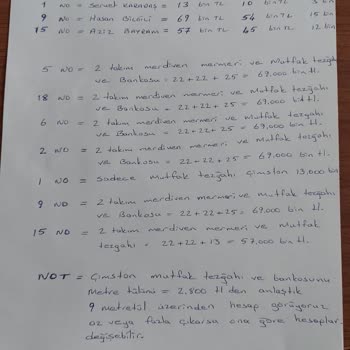 1 NO = Servet KARABAŞ = 13 bin TL 10 bin TL 3 bin
9 NO = Hasan Bilgici = 69 bin TL 54 bin TL 15 bin
15 NO = Aziz BAYRAM = 57 bin TL 45 bin TL 12 bin
5 NO = 2 takım merdiven mermeri ve Mutfak tezgahı
ve Bankosu = 22+22+25 = 69.000 bin tl.
18 NO = 2 takım merdiven mermeri ve Mutfak tezgahı
ve Bankosu = 22+22+25 = 69.000 bin tl.
6 NO = 2 takım merdiven mermeri ve Mutfak tezgahı
ve Bankosu = 22+22+25 = 69,000 bin tl.
2 NO = 2 takım merdiven mermeri ve Mutfak tezgahı
ve Bankosu = 22+22+25 = 69.000 bin tl.
1 NO = Sadece Mutfak tezgahı çimston 13.000 bin
9 NO = 2 takım merdiven mermeri ve Mutfak tezgahı
ve Bankosu = 22+22+25 = 69.000 bin tl.
15 NO = 2 takım merdiven mermeri ve Mutfak
tezgahı = 22+22+13 = 57.000 bin tl.
NOT = Çimston mutfak tezgahı ve bankosunu
Metre tülünü = 2.800 tl den anlaştık
9 metretül üzerinden hesap görüyoruz
az veya fazla çıkarsa ona göre hesaplar
değişebilir.